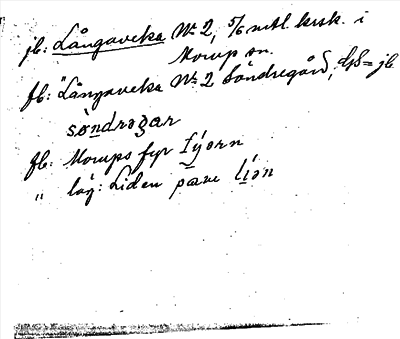 jb: Långaveka No 2, 5/6 mtl. krsk. i
Morup sn.
fb: "Långaveka No 2 Söndregård, dss = jb
söndrəgar
fb: Morups fyr fýorn
" låg: Liden pave líən